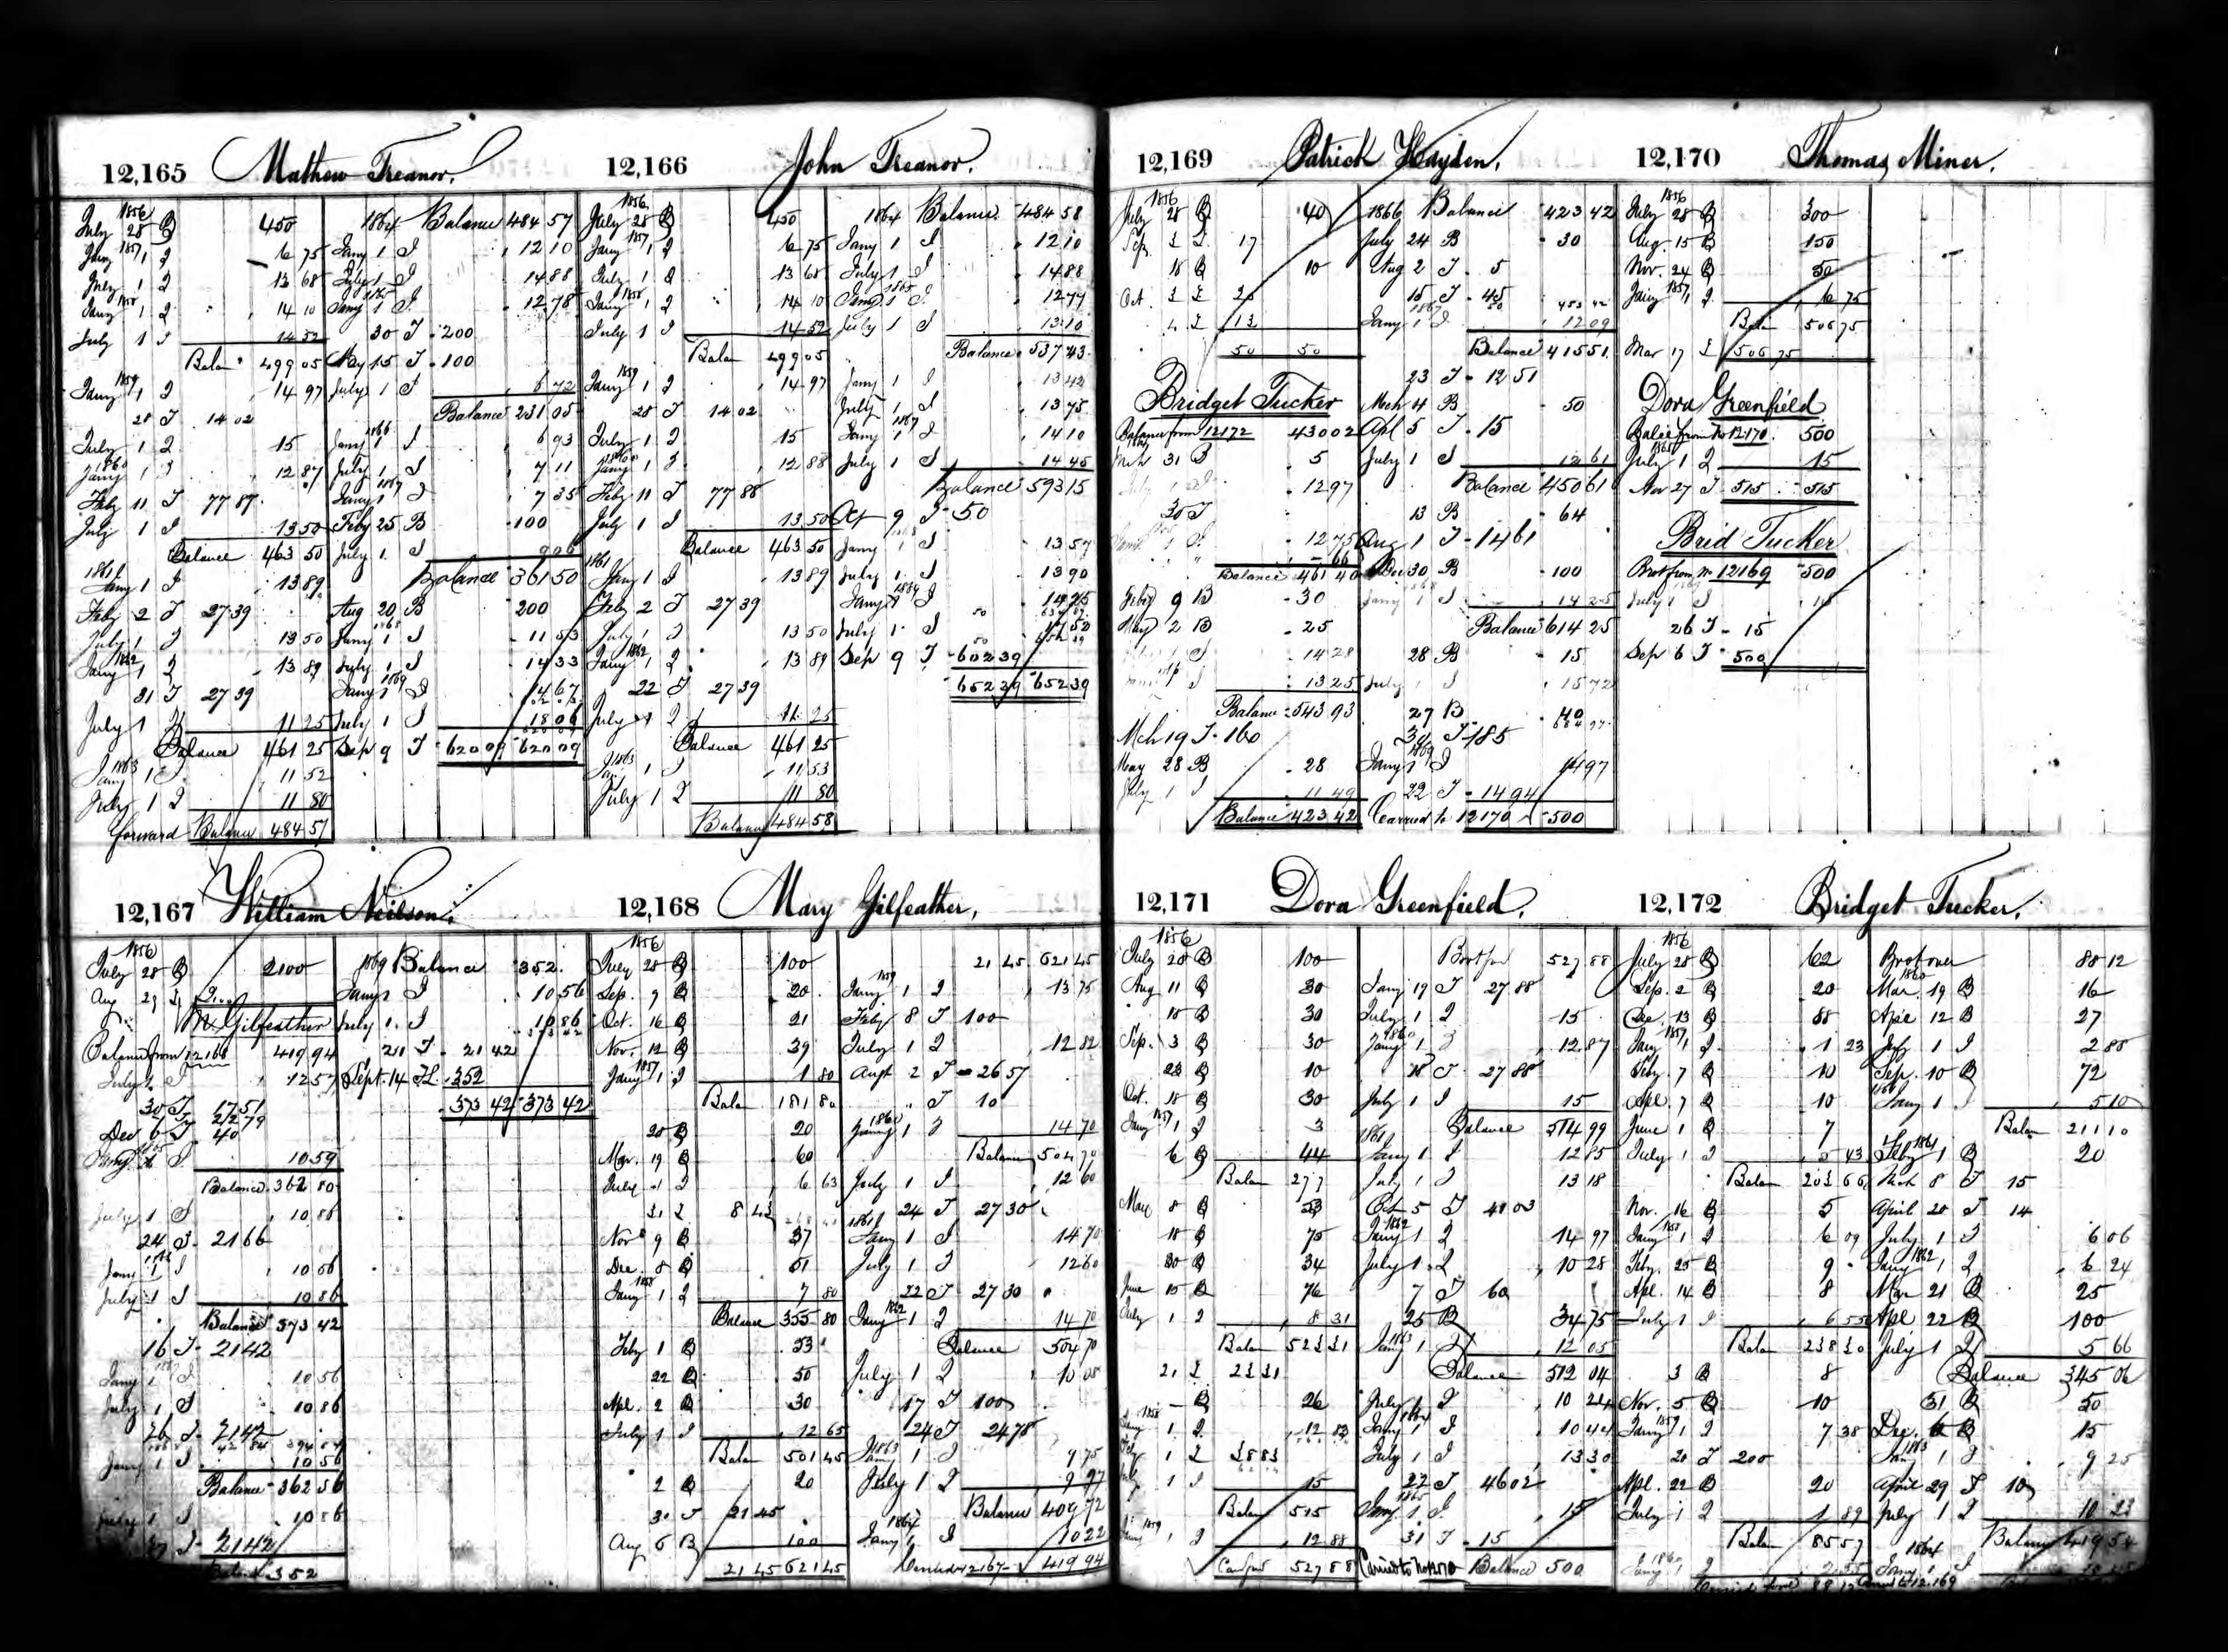 12,165 Mathew Treanor.
1856
July 28 B 450
1857
Jany 1 I 6 75
July 1 I 13 68
1858
Jany 1 I 14 10
July 1 I 14 52
Balan 499 05
1859
Jany 1 I 14 97
28 T 14 02
July 1 I 15
1860
Jany 1 I 12 87
Feby 11 T 77 87
July 1 I 13 50
Balance 463 50
1861
Jany 1 I 13 89
Feby 2 T 27 39
July 1 I 13 50
1862
Jany 1 I 13 89
21 T 27 39
July 1 I 11 25
Balance 461 25
1863
Jany 1 I 11 52
July 1 I 11 80
forward Balance 484 57
1864 Balance 484 57
Jany 1 I 12 10
July 1 I 14 88
1865
Jany 1 I 12 78
30 T 200
May 15 T 100
July 1 I 6 72
Balance 231 05
1866
Jany 1 I 6 93
July 1 I 7 11
1867
Jany 1 I 7 35
Feby 25 B 100
July 1 I 9 06
Balance 361 50
Aug 20 B 200
1868
Jany 1 I 11 53
July 1 I 14 33
1869
Jany 1 I 14 67
July 1 I 18 06
Sep 9 T 620 09 620 09
12,166 John Treanor.
1856
July 28 B 450
1857
Jany 1 I 6 75
July 1 I 13 68
1858
Jany 1 I 14 10
July 1 I 14 52
Balan 499 05
1859
Jany 1 I 14 97
28 T 14 02
July 1 I 15
1860
Jany 1 I 12 88
Feby 11 T 77 88
July 1 I 13 50
Balance 463 50
1861
Jany 1 I 13 89
Feby 2 T 27 39
July 1 I 13 50
1862
Jany 1 I 13 89
22 T 27 39
July 1 I 11 25
Balance 461 25
1863
Jan 1 I 11 53
July 1 I 11 80
Balance 484 58
1864 Balance 484 58
Jany 1 I 12 10
July 1 I 14 88
1865
Jany 1 I 12 77
July 1 I 13 10
Balance 537 43
Jany 1 I 13 42
July 1 I 13 75
1867
Jany 1 I 14 10
July 1 I 14 45
Balance 593 15
Oct 9 T 50
Jany 1 I 13 57
July 1 I 13 90
1869
Jany 1 I 14 25
July 1 I
Sep 9 T 602 39
652 39 652 39
12,167 William Neilson.
1856
July 28 B 2100
Aug 29
M. Gilfeather
Balance from 12168 419 94
July 1 I 12 57
30 T 17 51
212 79
Dec 6 T 40
Jany 1 I 10 59
Balance 362 80
July 1 I 10 86
24 T 21 66
Jany 1 I 10 56
July 1 I 10 86
Balance 373 42
16 T 21 42
Jany 1 I 10 56
July 1 I 10 86
26 T 21 42
Jany 1 I 10 56
Balance 362 56
July 1 I 10 86
27 T 21 42
Balan 352
1869 Balance 352
Jany 1 I 10 56
July 1 I 10 86
20 T 21 42
Sept 14 T 352
373 42 373 42
12,168 Mary Gilfeather,
1856
July 28 B 100
Sep. 9 B 20
Oct. 16 B 21
Nov. 12 B 39
1857
Jany 1 I 1 80
Balan 181 80
20 B 20
Mar. 19 B 60
July 1 I 6 63
31 8 43
Nov 9 B 37
Dec. 8 B 51
1858
Jany 1 I 7 80
Balance 355 80
Feby 1 B 53
22 B 50
Apl. 2 B 30
July 1 I 12 65
Balan 501 45
2 B 20
30 T 21 45
Aug 6 B 100
21 45 621 45
21 45 621 45
1859
Jany 1 I 13 75
Feby 8 T 100
July 1 I 12 82
Augt 2 T 26 57
" T 10
1860
Jany 1 I 14 70
Balan 504 70
July 1 I 12 60
24 T 27 30
1861
Jany 1 I 14 70
July 1 I 12 60
22 T 27 30
1862
Jany 1 I 14 70
Balance 504 70
July 1 I 10 08
17 T 100
24 T 24 78
1863
Jany 1 I 9 75
July 1 I 9 97
Balance 409 72
1864
Jany 1 I 10 22
Carried to 12167 419 94
12,169 Patrick Hayden.
1856
July 28 B 40
Sep. 17
18 B 10
Oct.
13
50 50
Bridget Tucker
Balance from 12172 430 02
Mch 31 B 5
July 1 I 12 97
30 T
12 75
66
Balance 461 40
Feby 9 B 30
May 2 B 25
14 28
13 25
Balance 543 93
Mch 19 T 160
May 28 B 28
July 1 I 11 49
Balance 423 42
1866 Balance 423 42
July 24 B 30
Aug 2 T 5
15 T 45
1867
Jany 1 I 12 09
Balance 415 51
23 T 12 51
Mch 4 B 50
Apl 5 T 15
July 1 I 12 61
Balance 450 61
13 B 64
Aug 1 T 14 61
Dec 30 B 100
Jany 1 I 14 25
Balance 614 25
28 B 15
July 1 I 15 72
27 B 40
31 T 185
1869
Jany 1 I 14 97
22 T 14 94
Carried to 12170 500
12,170 Thomas Miner.
1856
July 28 B 300
Aug. 15 B 150
Nov. 24 B 50
1857
Jany 1 I 6 75
Balan 506 75
Mar 17 506 75
Dora Greenfield
Balce from No 12170. 500
1865
July 1 I 15
Nov 27 T 515 515
Brid Tucker
Brot from No 12169 500
July 1 I 15
26 T 15
Sep 6 T 500
12,171 Dora Greenfield.
1856
July 28 B 100
Aug 11 B 30
18 B 30
Sep. 3 B 30
23 B 10
Oct. 18 B 30
1857
Jany 1 I 3
6 B 44
Balan 277
Mar 8 B 53
18 B 75
30 B 34
June 15 B 76
July 1 I 8 31
Balan 523 31
21 23 31
B 26
1858
Jany 1 I 12 83
July 1 38 83
July 1 I 15
Balan 515
1859
Jany 1 I 12 88
Car fwd 527 88
Brot for 527 88
Jany 19 T 27 88
July 1 I 15
1860
Jany 1 I 12 87
18 T 27 88
July 1 I 15
Balance 514 99
1861
Jany 1 I 12 85
July 1 I 13 18
Oct 5 T 41 03
1862
Jany 1 I 14 97
July 1 I 10 28
7 T 60
25 B 34 75
1863
Jany 1 I 12 05
Balance 512 04
July 1 I 10 24
1864
Jany 1 I 10 44
July 1 I 13 30
27 T 46 02
1865
Jany 1 I 15
31 T 15
Carried to No 12170 Balance 500
12,172 Bridget Tucker.
1856
July 28 B 62
Sep. 2 B 20
Dec 13 B 88
1857
Jany 1 I 1 23
Feby. 7 B 10
Apl. 7 B 10
June 1 B 7
July 1 I 5 43
Balan 203 66
Nov. 16 B 5
1858
Jany 1 I 6 09
Feby. 25 B 9
Apl. 14 B 8
July 1 I 6 55
Balan 238 30
3 B 8
Nov. 5 B 10
1859
Jany 1 I 7 38
20 T 200
Apl. 22 B 20
July 1 I 1 89
Balan 85 57
1860
Jany 1 I 2 55
88 12
Brot over 88 12
1860
Mar. 19 B 16
Apl 12 B 27
July 1 I 2 88
Sep. 10 B 72
1861
Jany 1 I 5 10
Balan 211 10
1861
Feby 1 B 20
Mch 8 T 15
April 20 T 14
July 1 I 6 06
1862
Jany 1 I 6 24
Mar 21 B 25
Apl 22 B 100
July 1 I 5 66
Balance 345 06
31 B 50
Dec. 6 B 15
1863
Jany 1 I 9 25
April 29 T 10
July 1 I 10 23
Balance 419 54
1864
Jany 1 I
Carried to 12.169